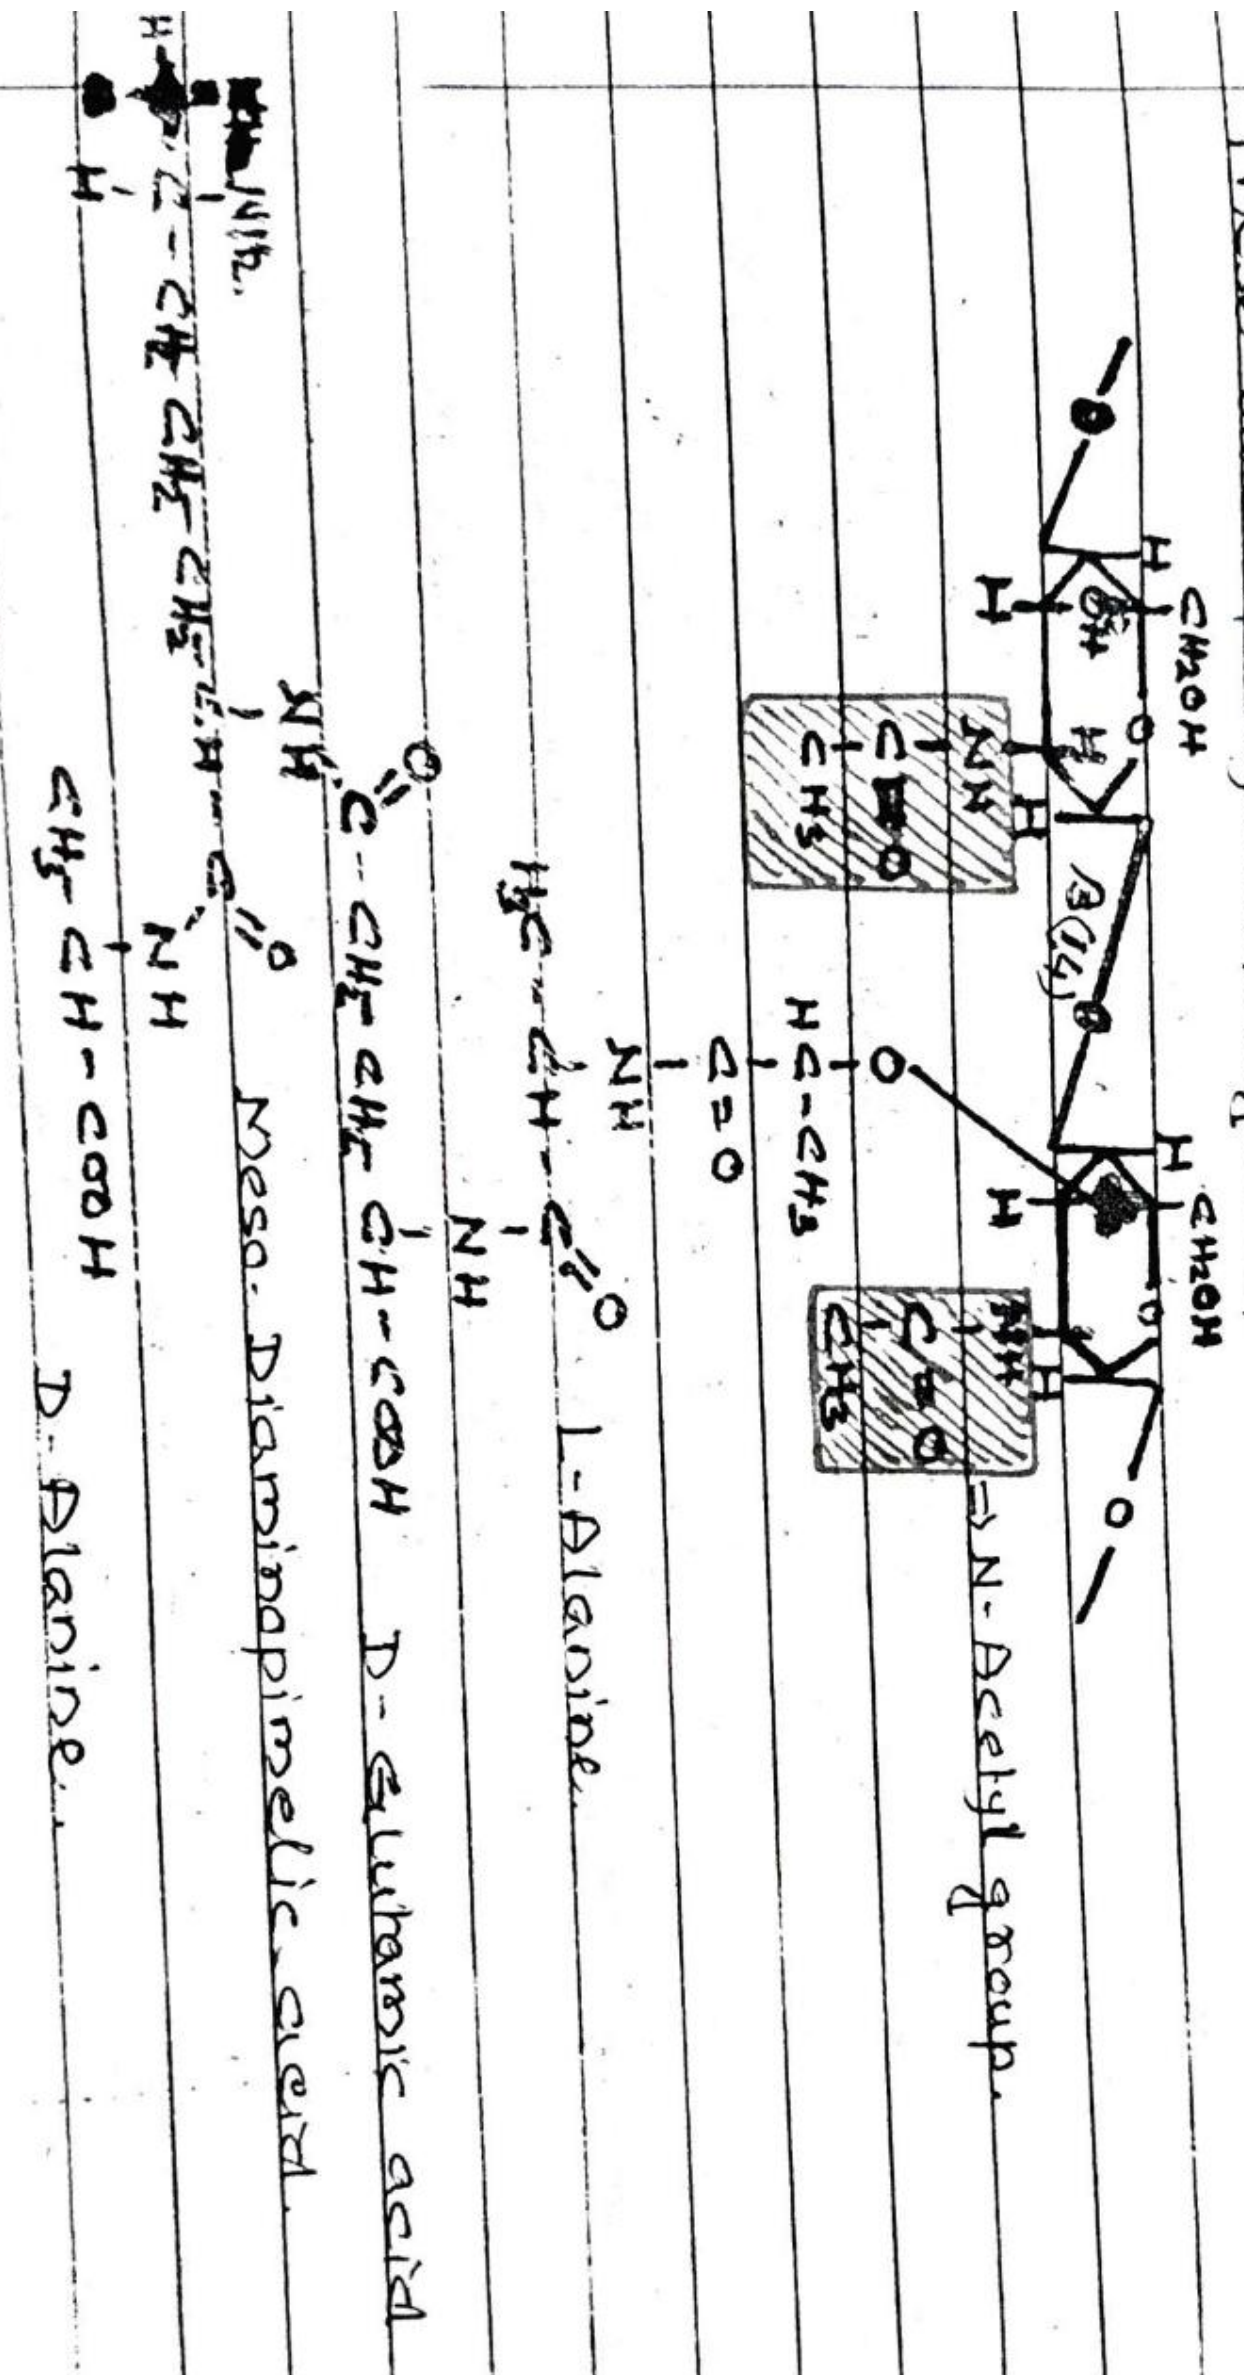 CH2OH CH2OH
H O H O
O OH H β(1,4) O O
H H H H
NH NH ⇒ N-Acetyl group.
C=O O C=O
CH3 HC-CH3 CH3
C=O
NH
H3C-CH-C=O L-Alanine.
NH
O=C-CH2-CH2-CH-COOH D-Glutamic acid
NH
NH2
H-C-CH2-CH2-CH2-CH-C=O Meso-Diaminopimelic acid.
H
NH
CH3-CH-COOH D-Alanine.